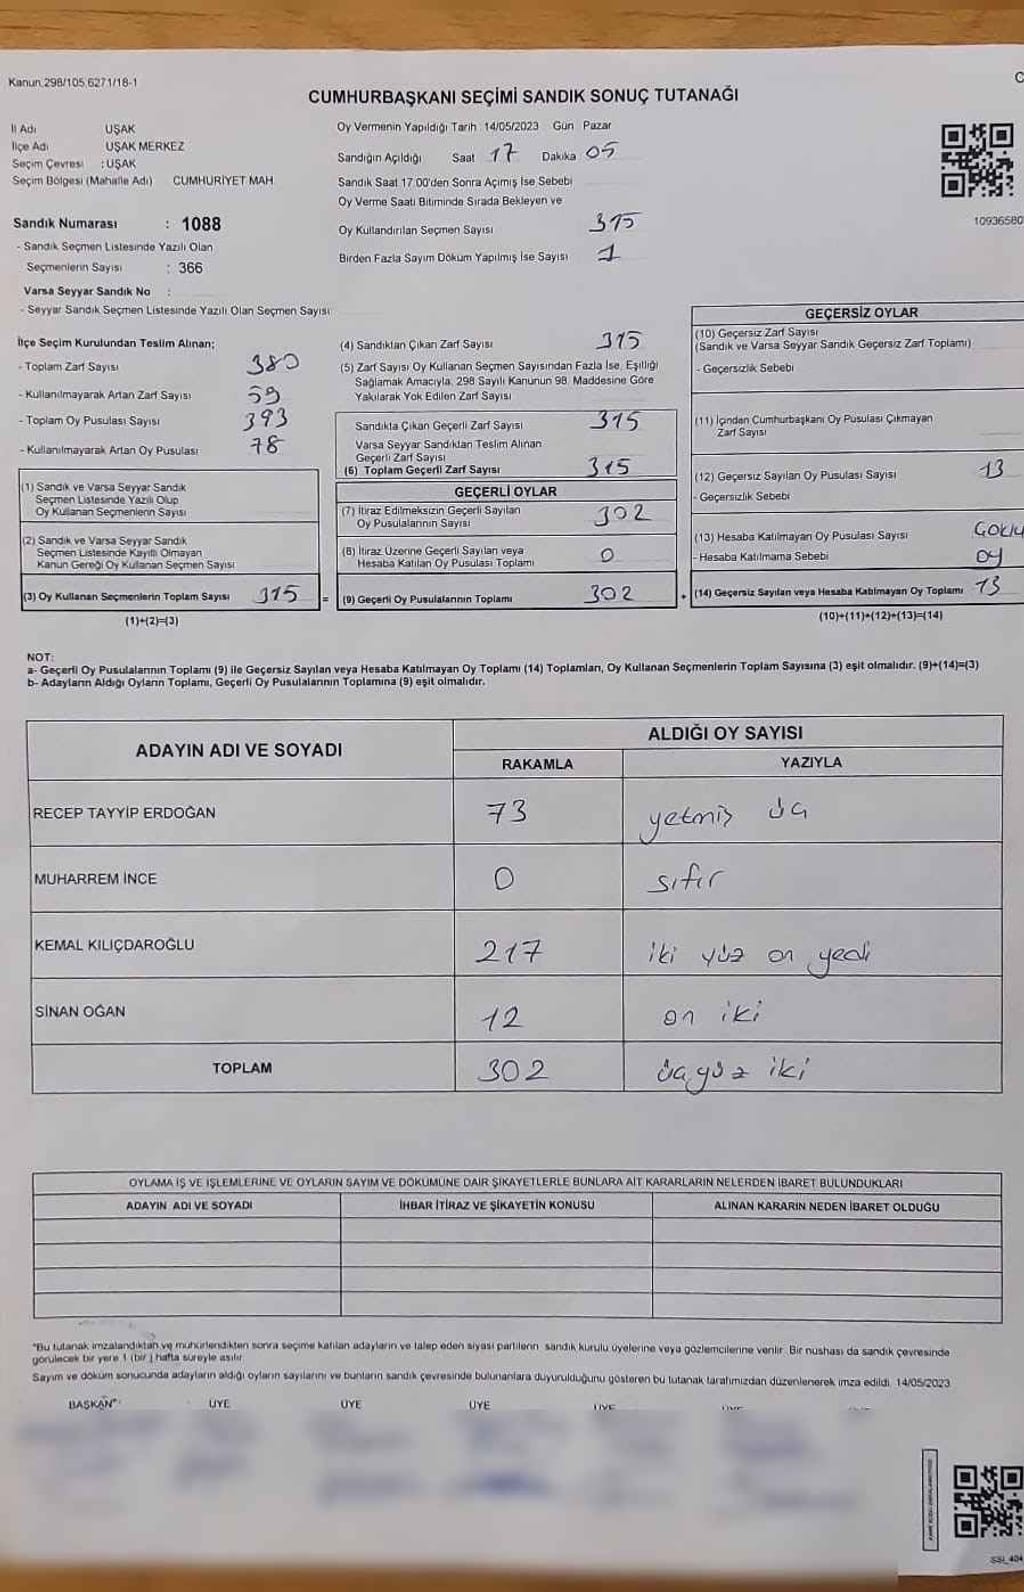 Kanun.298/105.6271/18-1
CUMHURBAŞKANI SEÇİMİ SANDIK SONUÇ TUTANAĞI
İl Adı UŞAK
İlçe Adı UŞAK MERKEZ
Seçim Çevresi : UŞAK
Seçim Bölgesi (Mahalle Adı) CUMHURİYET MAH
Oy Vermenin Yapıldığı Tarih 14/05/2023 Gün Pazar
Sandığın Açıldığı Saat 17 Dakika 05
Sandık Saat 17:00'den Sonra Açımış İse Sebebi
Oy Verme Saati Bitiminde Sırada Bekleyen ve
Oy Kullandırılan Seçmen Sayısı 315
Birden Fazla Sayım Döküm Yapılmış İse Sayısı 1
10936580
Sandık Numarası : 1088
- Sandık Seçmen Listesinde Yazılı Olan
Seçmenlerin Sayısı : 366
Varsa Seyyar Sandık No :
- Seyyar Sandık Seçmen Listesinde Yazılı Olan Seçmen Sayısı
İlçe Seçim Kurulundan Teslim Alınan;
- Toplam Zarf Sayısı 380
- Kullanılmayarak Artan Zarf Sayısı 59
- Toplam Oy Pusulası Sayısı 393
- Kullanılmayarak Artan Oy Pusulası 78
(1) Sandık ve Varsa Seyyar Sandık
Seçmen Listesinde Yazılı Olup
Oy Kullanan Seçmenlerin Sayısı
(2) Sandık ve Varsa Seyyar Sandık
Seçmen Listesinde Kayıtlı Olmayan
Kanun Gereği Oy Kullanan Seçmen Sayısı
(3) Oy Kullanan Seçmenlerin Toplam Sayısı 315 =
(1)+(2)=(3)
(4) Sandıktan Çıkan Zarf Sayısı 315
(5) Zarf Sayısı Oy Kullanan Seçmen Sayısından Fazla İse, Eşitliği
Sağlamak Amacıyla, 298 Sayılı Kanunun 98. Maddesine Göre
Yakılarak Yok Edilen Zarf Sayısı
Sandıkta Çıkan Geçerli Zarf Sayısı 315
Varsa Seyyar Sandıktan Teslim Alınan
Geçerli Zarf Sayısı
(6) Toplam Geçerli Zarf Sayısı 315
GEÇERLİ OYLAR
(7) İtiraz Edilmeksizin Geçerli Sayılan
Oy Pusulalarının Sayısı 302
(8) İtiraz Üzerine Geçerli Sayılan veya
Hesaba Katılan Oy Pusulası Toplamı 0
(9) Geçerli Oy Pusulalarının Toplamı 302
GEÇERSİZ OYLAR
(10) Geçersiz Zarf Sayısı
(Sandık ve Varsa Seyyar Sandık Geçersiz Zarf Toplamı)
- Geçersizlik Sebebi
(11) İçinden Cumhurbaşkanı Oy Pusulası Çıkmayan
Zarf Sayısı
(12) Geçersiz Sayılan Oy Pusulası Sayısı 13
- Geçersizlik Sebebi
(13) Hesaba Katılmayan Oy Pusulası Sayısı
- Hesaba Katılmama Sebebi oy
(14) Geçersiz Sayılan veya Hesaba Katılmayan Oy Toplamı 13
(10)+(11)+(12)+(13)=(14)
NOT:
a- Geçerli Oy Pusulalarının Toplamı (9) ile Geçersiz Sayılan veya Hesaba Katılmayan Oy Toplamı (14) Toplamları, Oy Kullanan Seçmenlerin Toplam Sayısına (3) eşit olmalıdır. (9)+(14)=(3)
b- Adayların Aldığı Oyların Toplamı, Geçerli Oy Pusulalarının Toplamına (9) eşit olmalıdır.
ADAYIN ADI VE SOYADI
ALDIĞI OY SAYISI
RAKAMLA YAZIYLA
RECEP TAYYİP ERDOĞAN 73 yetmiş üç
MUHARREM İNCE 0 sıfır
KEMAL KILIÇDAROĞLU 217 iki yüz on yedi
SİNAN OĞAN 12 on iki
TOPLAM 302 üçyüz iki
OYLAMA İŞ VE İŞLEMLERİNE VE OYLARIN SAYIM VE DÖKÜMÜNE DAİR ŞİKAYETLERLE BUNLARA AİT KARARLARIN NELERDEN İBARET BULUNDUKLARI
ADAYIN ADI VE SOYADI İHBAR İTİRAZ VE ŞİKAYETİN KONUSU ALINAN KARARIN NEDEN İBARET OLDUĞU
"Bu tutanak imzalandıktan ve mühürlendikten sonra seçime katılan adayların ve talep eden siyasi partilerin sandık kurulu üyelerine veya gözlemcilerine verilir. Bir nüshası da sandık çevresinde
görülecek bir yere 1 (bir) hafta süreyle asılır.
Sayım ve döküm sonucunda adayların aldığı oyların sayılarını ve bunların sandık çevresinde bulunanlara duyurulduğunu gösteren bu tutanak tarafımızdan düzenlenerek imza edildi. 14/05/2023
BAŞKAN ÜYE ÜYE ÜYE